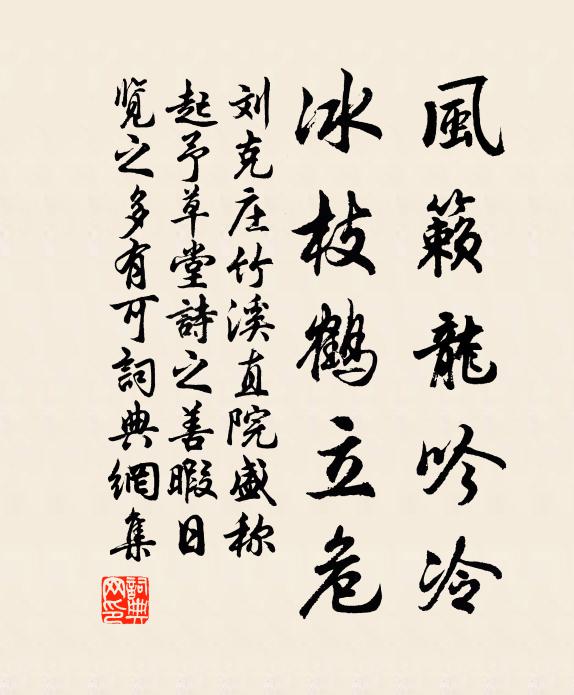 風籟龍吟冷
冰枝鶴立危
刘克庄竹溪直院盛称
起予草堂詩之善暇日
覽之多有可詞典網集
詞典網印